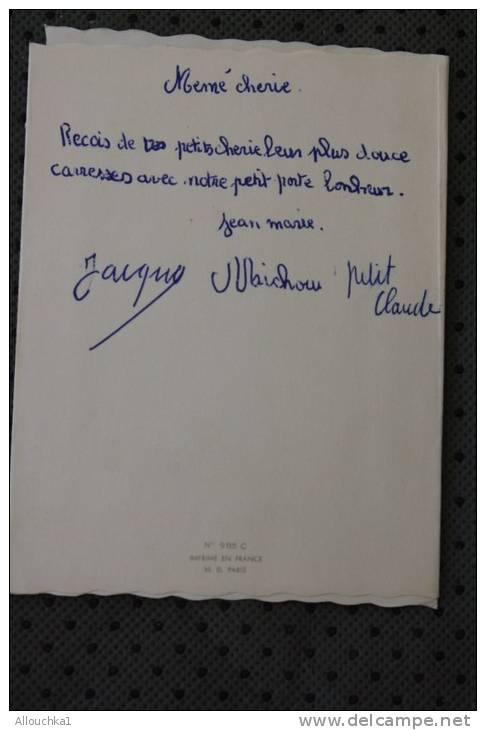 Memé cherie.
Recois de tes petits cherie leur plus douce
caresses avec notre petit porte bonheur.
Jean marie.
Jacques Maichou petit
Claude
N° 9155 C
IMPRIMÉ EN FRANCE
M. D. PARIS
Allouchka1
www.delcampe.net